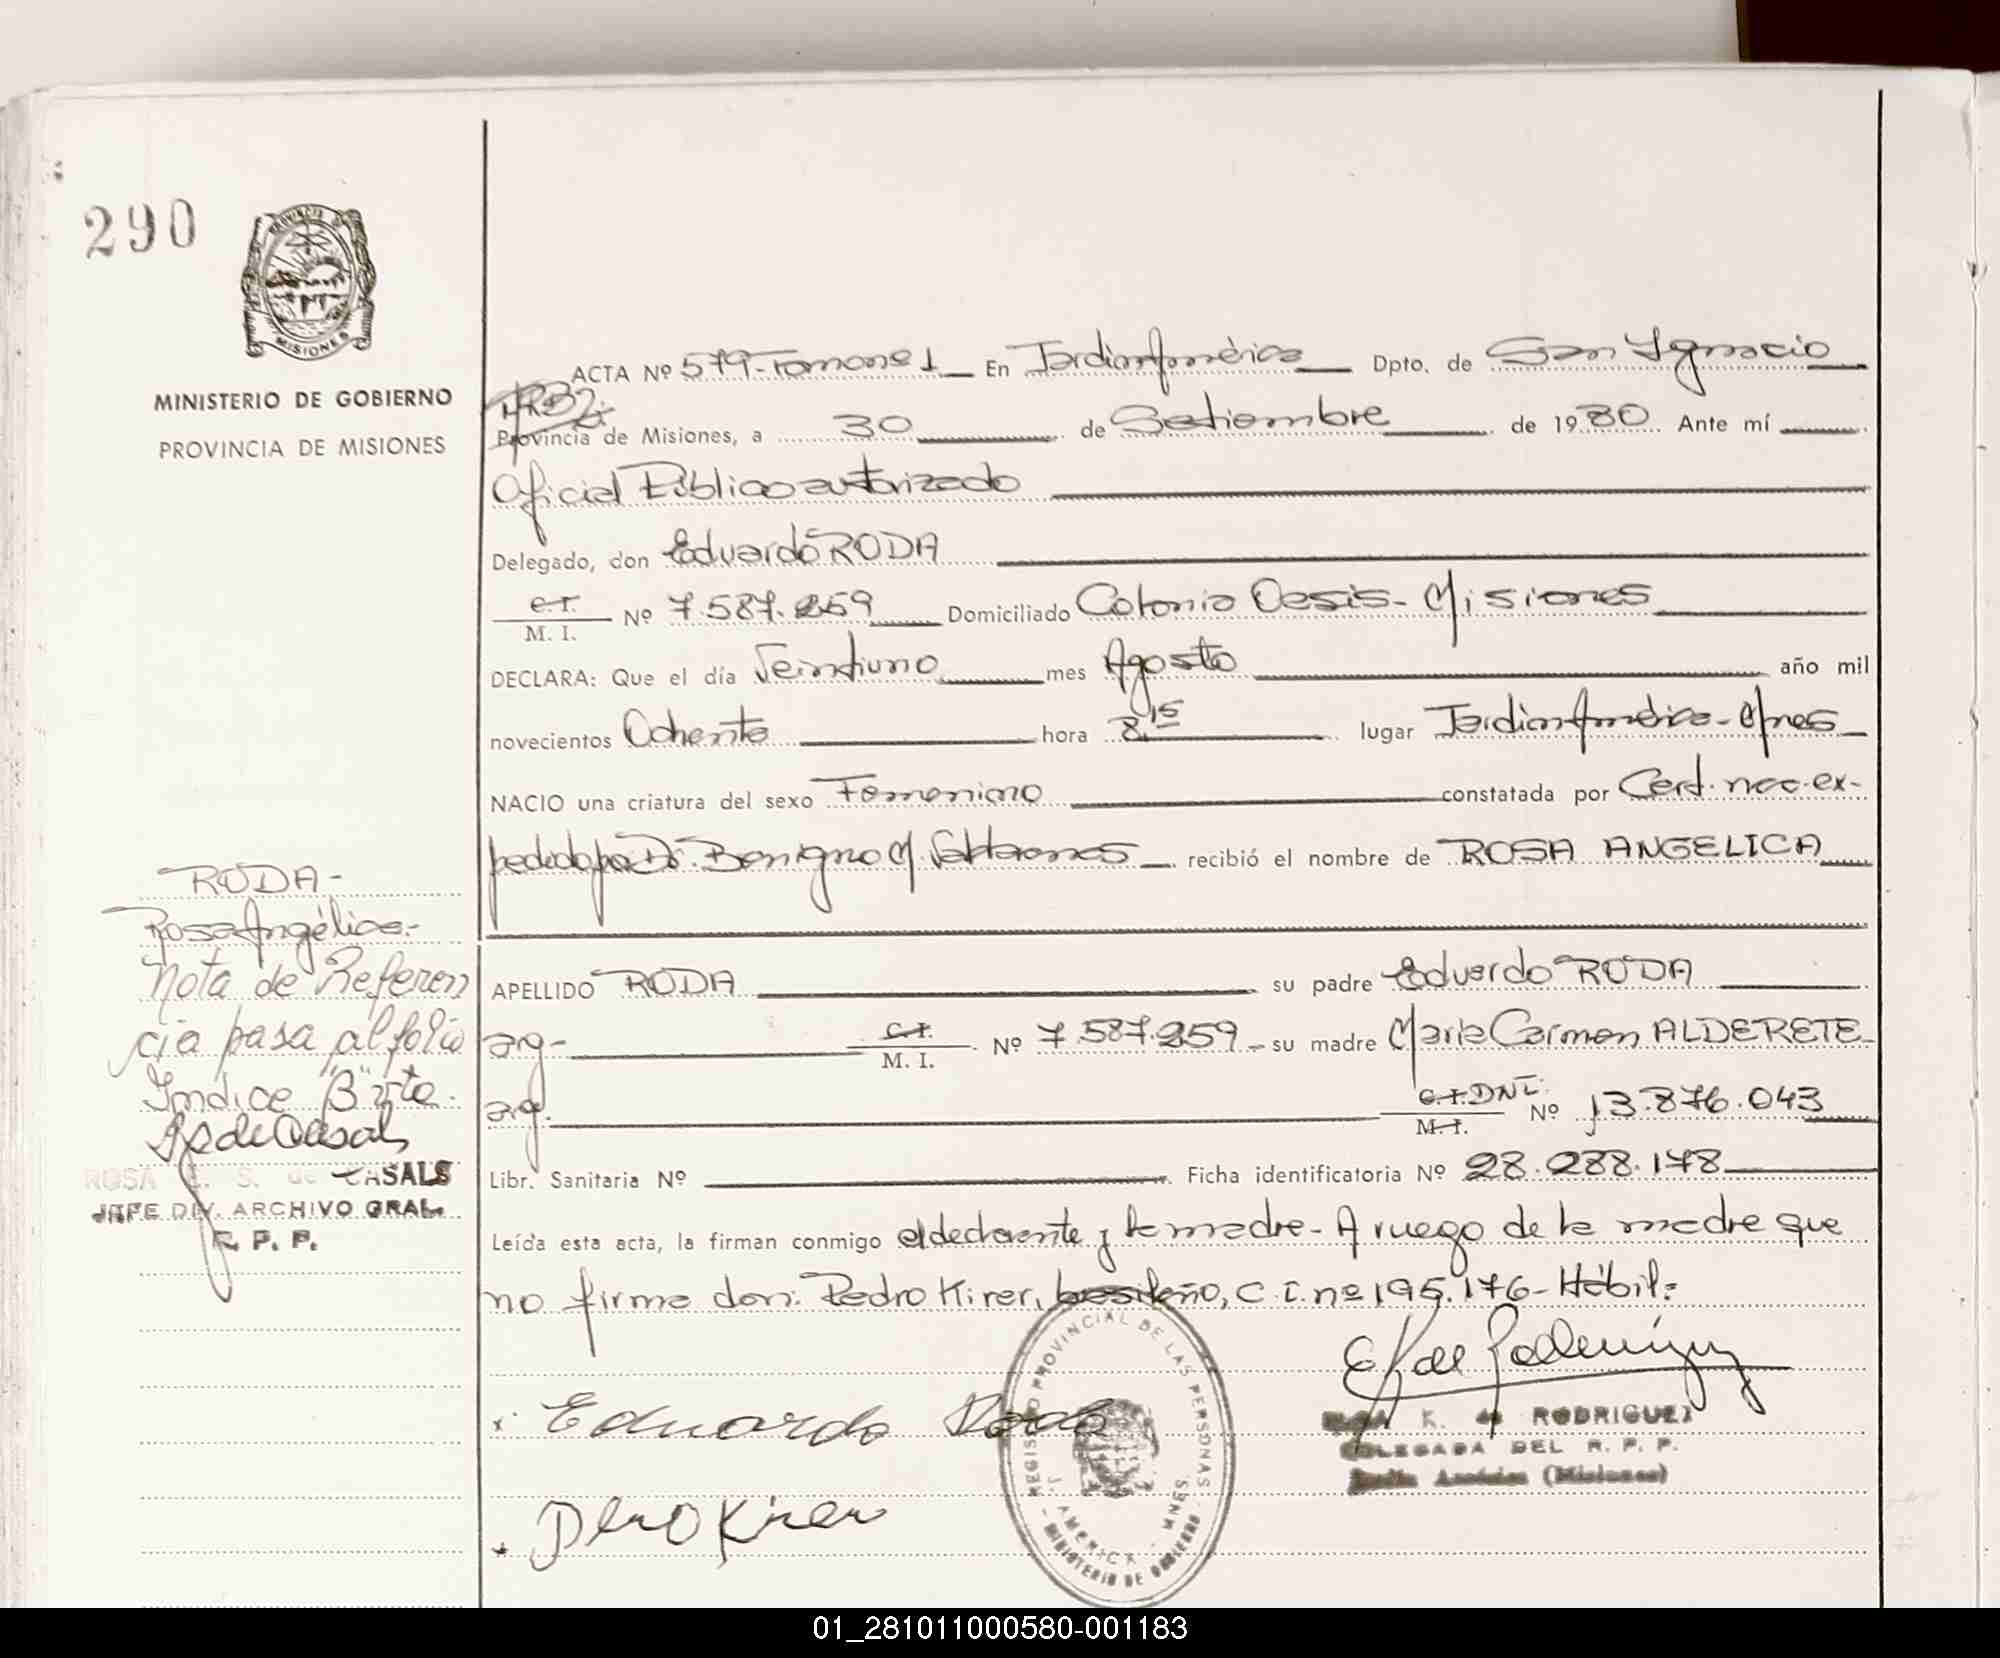 290
PROVINCIA DE
MISIONES
MINISTERIO DE GOBIERNO
PROVINCIA DE MISIONES
ACTA Nº 579-Tomo nº 1 En Jardín América Dpto. de San Ignacio
Provincia de Misiones, a 30 de Setiembre de 1980. Ante mí
Oficial Público autorizado
Delegado, don Eduardo RODA
C.I.
M. I. Nº 7.587.259 Domiciliado Colonia Oasis - Misiones
DECLARA: Que el día Veintiuno mes Agosto año mil
novecientos Ochenta hora 8,15 lugar Jardín América - Mnes
NACIO una criatura del sexo Femenino constatada por Cert. nac. ex-
pedido por Dr. Benigno M. recibió el nombre de ROSA ANGELICA
APELLIDO RODA su padre Eduardo RODA
arg- C.I.
M. I. Nº 7.587.259 - su madre María Carmen ALDERETE-
arg. C.I. DNI.
M.I. Nº 13.876.043
Libr. Sanitaria Nº Ficha identificatoria Nº 28.288.178
Leída esta acta, la firman conmigo el declarante y la madre - A ruego de la madre que
no firma don: Pedro Kirer, brasileño, C.I. nº 195.176 - Hábil:
Eduardo Roda
Pedro Kirer
REGISTRO PROVINCIAL DE LAS PERSONAS
J. AMERICA - MNES.
- MINISTERIO DE GOBIERNO -
K. de RODRIGUEZ
DELEGADA DEL R. P. P.
Jardín América (Misiones)
RODA -
Rosa Angélica.-
Nota de Referen
cia pasa al folio
Indice "B" vta.
R de Casals
ROSA E. S. de CASALS
JEFE DIV. ARCHIVO GRAL.
R. P. P.
01_281011000580-001183